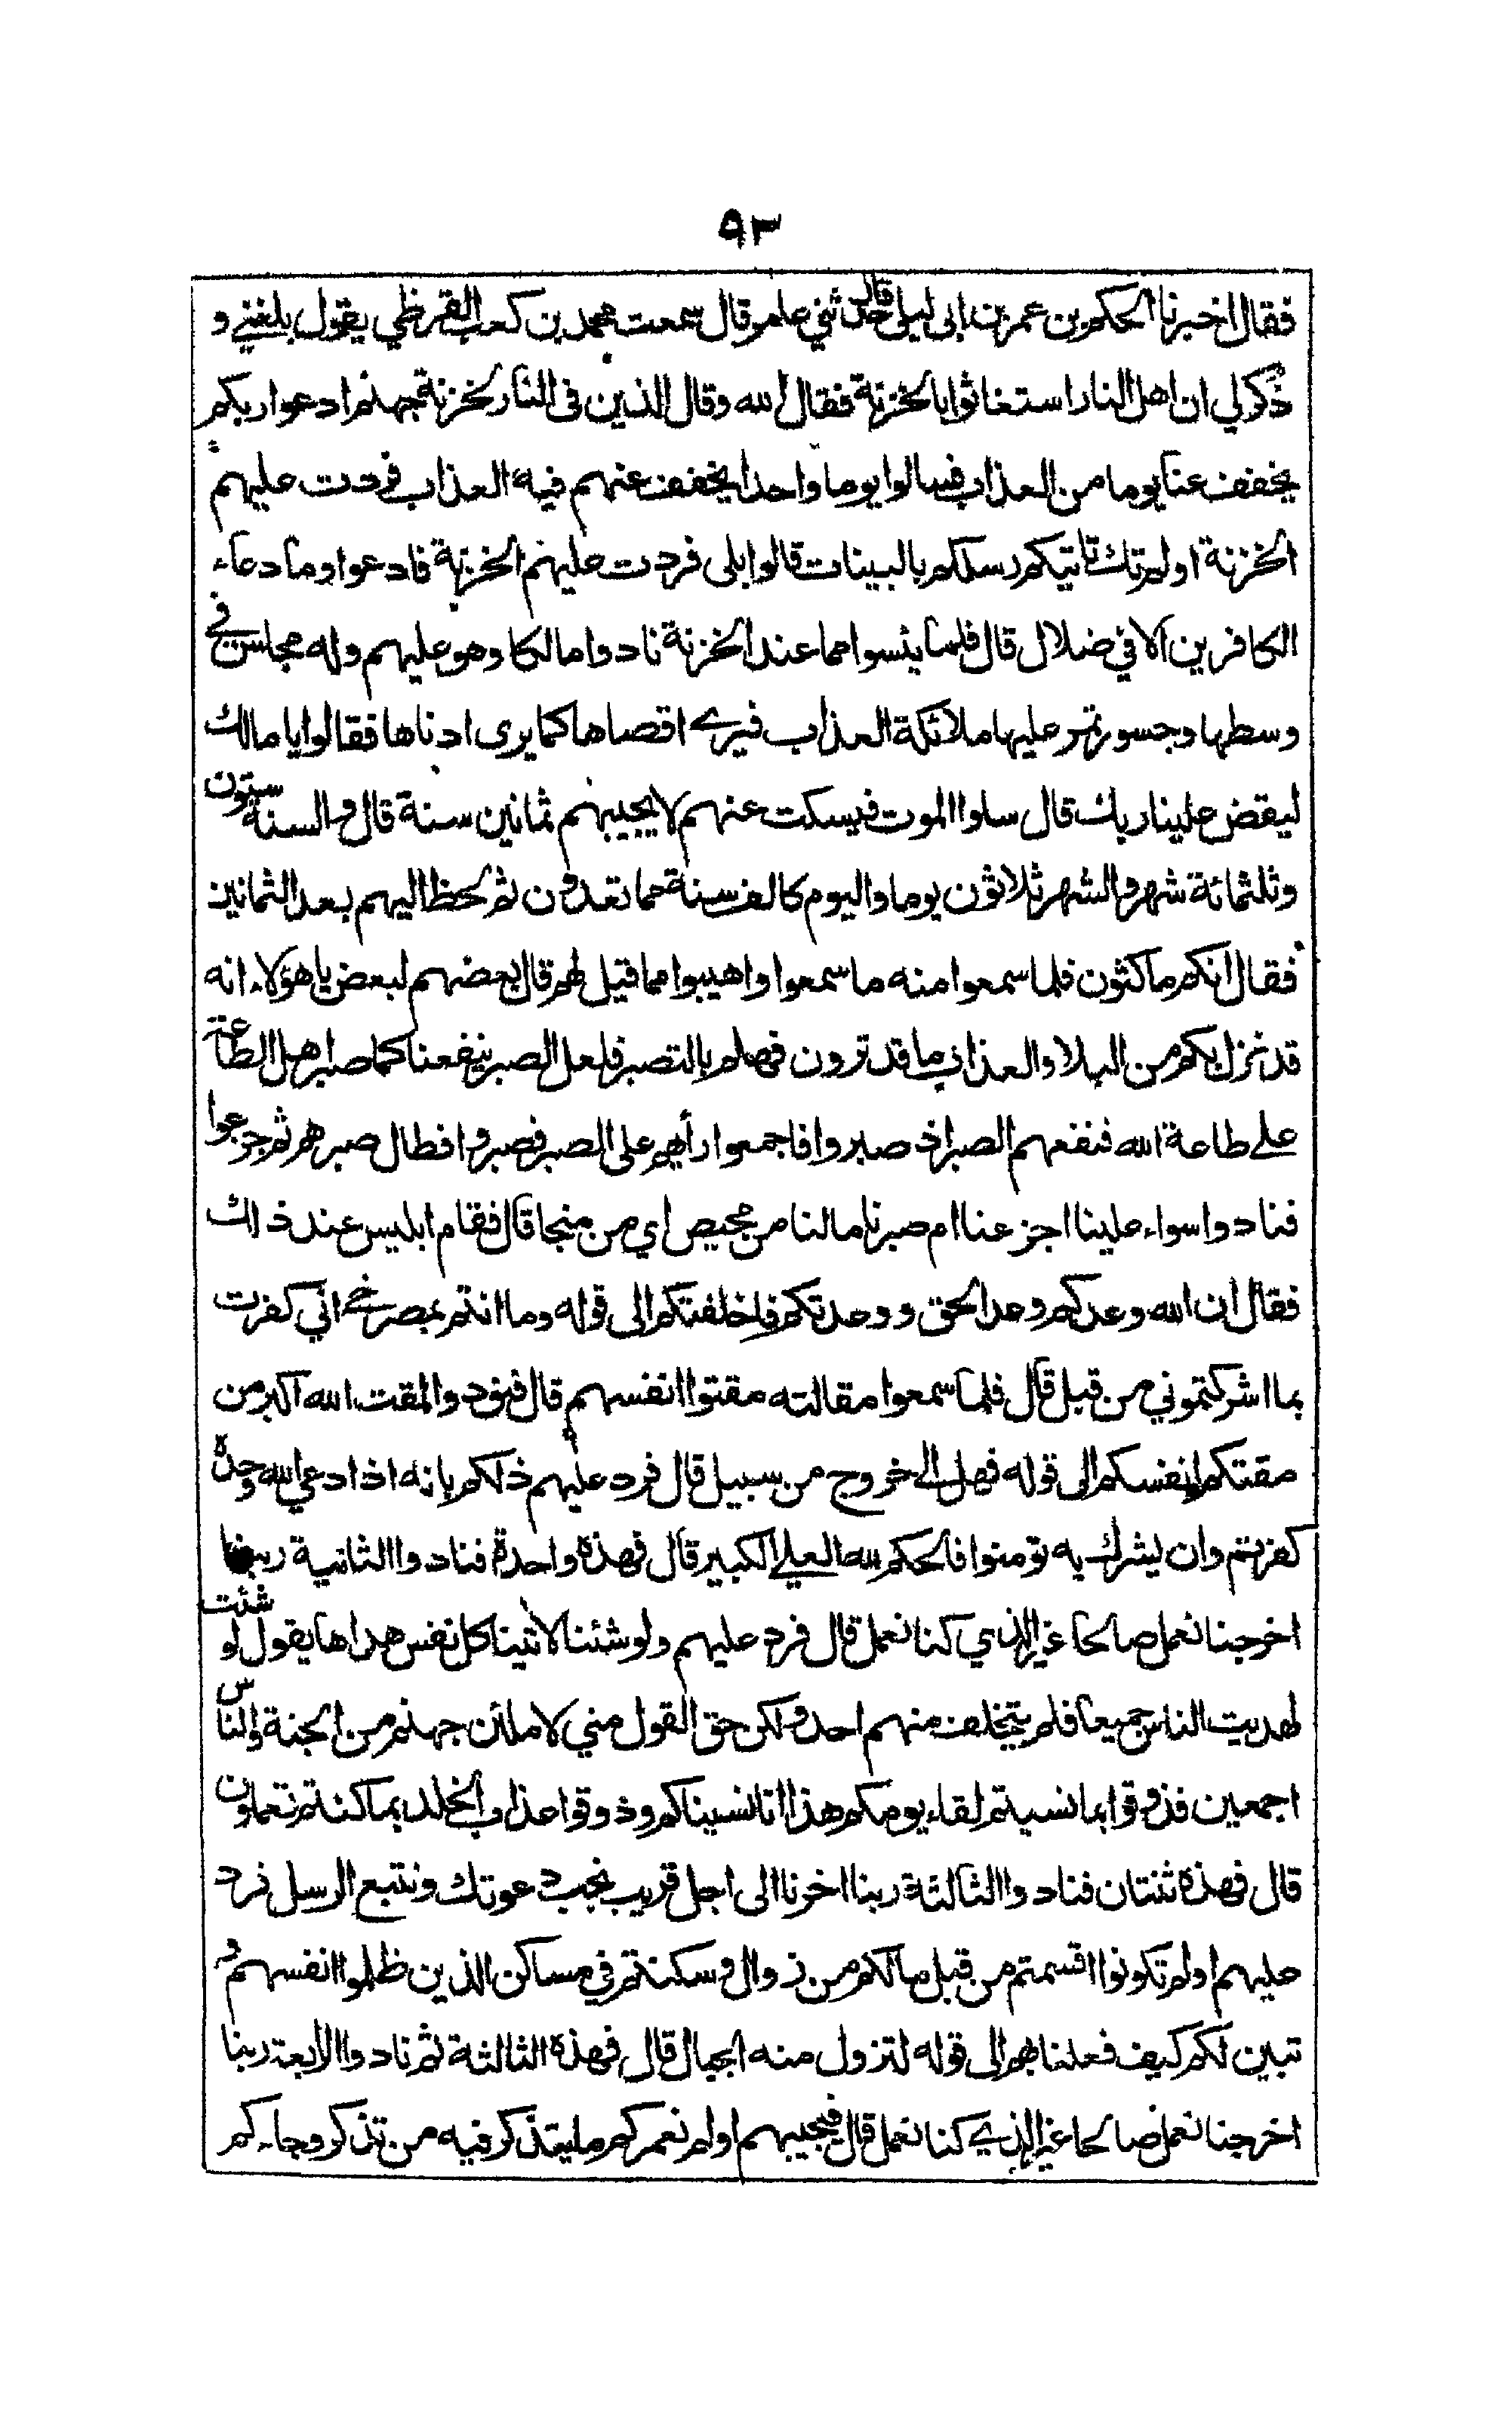 ٩٣
فقال اخبرنا الحكم بن عمر بن ابى ليلى قال حدثني عامر قال سمعت محمد بن كعب القرظي يقول بلغني و
ذكر لي ان اهل النار استغاثوا بالخزنة فقال الله وقال الذين فى النار لخزنة جهنم ادعوا ربكم
يخفف عنا يوما من العذاب فسالوا يوما واحدا يخفف عنهم فيه العذاب فردت عليهم
الخزنة اولم تك تاتيكم رسلكم بالبينات قالوا بلى فردت عليهم الخزنة فادعوا وما دعاء
الكافرين الا في ضلال قال فلما يئسوا مما عند الخزنة نادوا مالكا وهو عليهم وله مجلس في
وسطها وجسور تمر عليها ملائكة العذاب فيرى اقصاها كما يرى ادناها فقالوا يا مالك
ليقض علينا ربك قال سلوا الموت فيسكت عنهم لا يجيبهم ثمانين سنة قال والسنة ستون
وثلثمائة شهر والشهر ثلاثون يوما واليوم كالف سنة مما تعدون ثم لحظ اليهم بعد الثمانين
فقال انكم ماكثون فلما سمعوا منه ما سمعوا واهيبوا مما قيل لهم قال بعضهم لبعض يا هؤلاء انه
قد نزل بكم من البلاء والعذاب ما قد ترون فهلم بالتصبر فلعل الصبر ينفعنا كما صبر اهل الطاعة
على طاعة الله فنفعهم الصبر اذ صبروا فاجمعوا رأيهم على الصبر فصبروا فطال صبرهم ثم جزعوا
فنادوا سواء علينا اجزعنا ام صبرنا مالنا من محيص اي من منجا قال فقام ابليس عند ذلك
فقال ان الله وعدكم وعد الحق ووعدتكم فاخلفتكم الى قوله وما انتم بمصرخي اني كفرت
بما اشركتموني من قبل قال فلما سمعوا مقالته مقتوا انفسهم قال فنودوا لمقت الله اكبر من
مقتكم انفسكم الى قوله فهل الى خروج من سبيل قال فرد عليهم ذلكم بانه اذا دعي الله وحده
كفرتم وان يشرك به تومنوا فالحكم لله العلي الكبير قال فهذه واحدة فنادوا الثانية ربنا
اخرجنا نعمل صالحا غير الذي كنا نعمل قال فرد عليهم ولو شئنا لاتينا كل نفس هداها يقول لو شئت
لهديت الناس جميعا فلم يتخلف منهم احد ولكن حق القول مني لاملئن جهنم من الجنة والناس
اجمعين فذوقوا بما نسيتم لقاء يومكم هذا انا نسيناكم وذوقوا عذاب الخلد بما كنتم تعملون
قال فهذه ثنتان فنادوا الثالثة ربنا اخرنا الى اجل قريب نجب دعوتك ونتبع الرسل فرد
عليهم اولم تكونوا اقسمتم من قبل مالكم من زوال وسكنتم في مساكن الذين ظلموا انفسهم و
تبين لكم كيف فعلنا بهم الى قوله لتزول منه الجبال قال فهذه الثالثة ثم نادوا الرابعة ربنا
اخرجنا نعمل صالحا غير الذي كنا نعمل قال فيجيبهم اولم نعمركم ما يتذكر فيه من تذكر وجاءكم